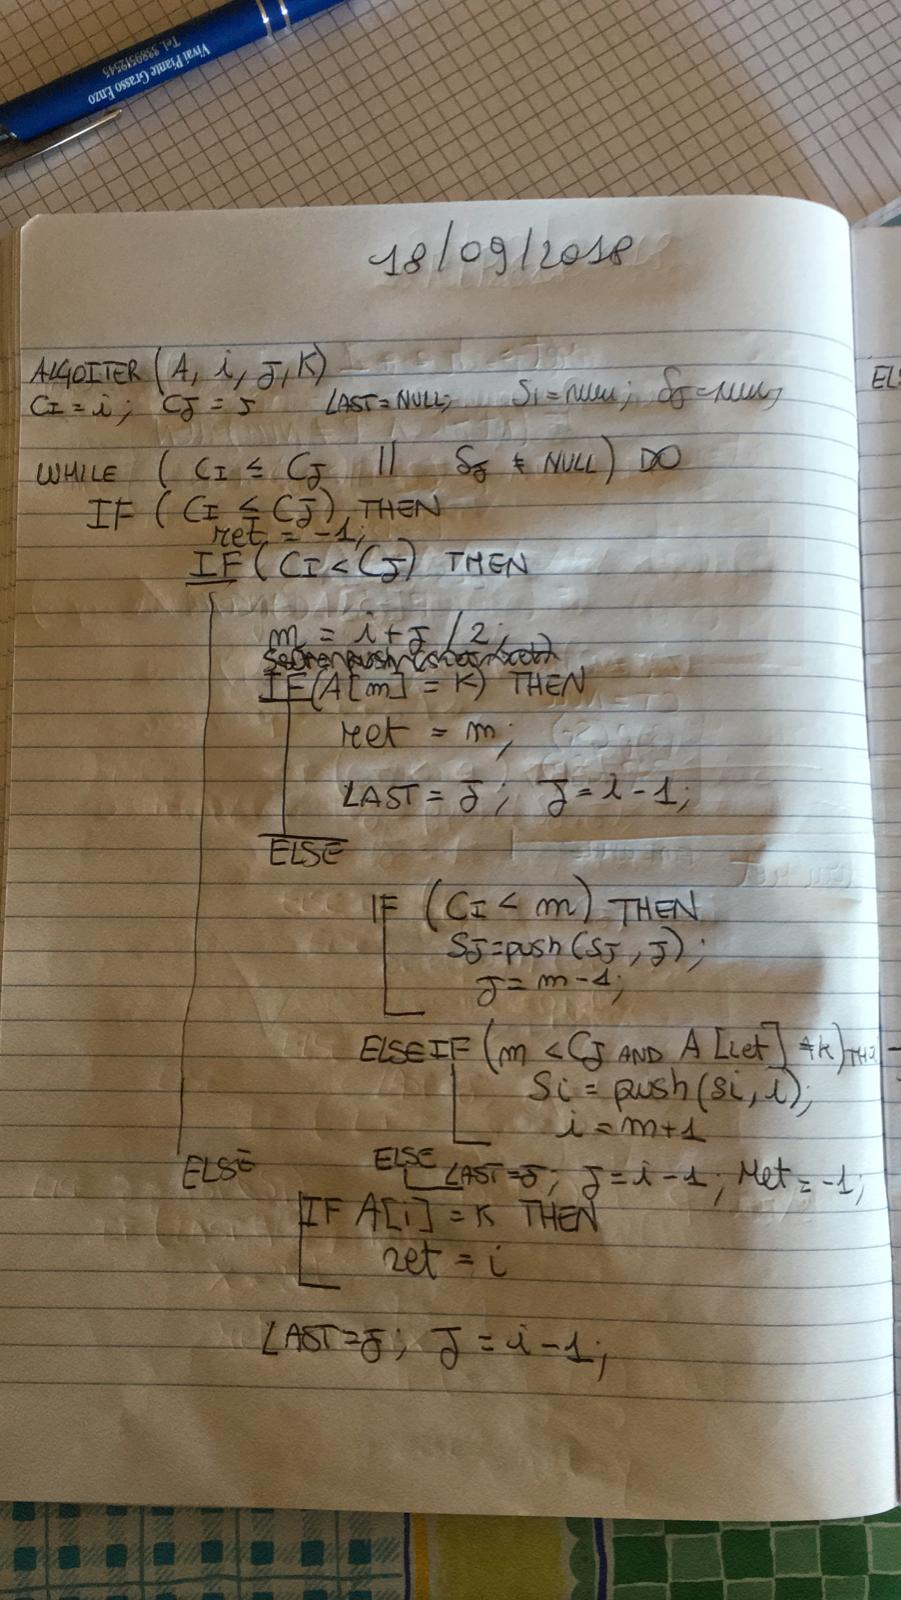 Vivai Piante Grasso Enzo
Tel. 3389512545
18/09/2018
ALGOITER (A, i, J, K)
CI = i; CJ = J LAST = NULL; Si = NULL; SJ = NULL;
ELS
WHILE ( CI ≤ CJ || SJ ≠ NULL) DO
IF ( CI ≤ CJ) THEN
ret = -1;
IF ( CI < CJ) THEN
m = i + J / 2;
IF (A[m] = K) THEN
ret = m;
LAST = J; J = i - 1;
ELSE
IF (CI < m) THEN
SJ = push (SJ, J);
J = m - 1;
ELSE IF (m < CJ AND A [ret] ≠ K)
Si = push(Si, i);
i = m+1
ELSE LAST = J; J = i - 1; ret = -1;
ELSE
IF A[i] = K THEN
ret = i
LAST = J; J = i - 1;